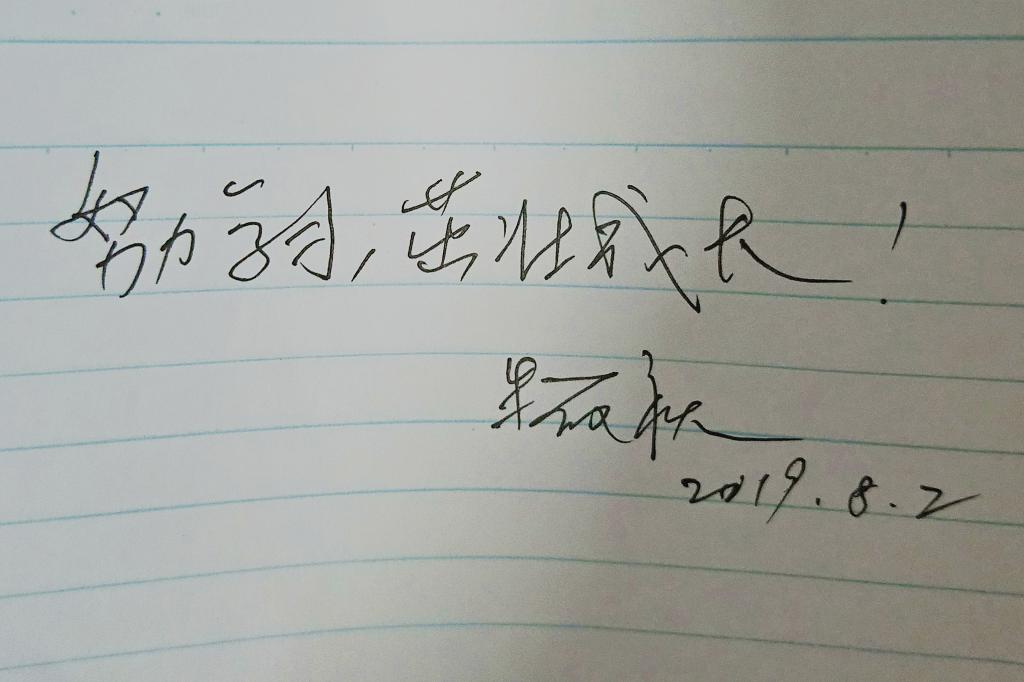 努力学习，茁壮成长！
2019.8.2